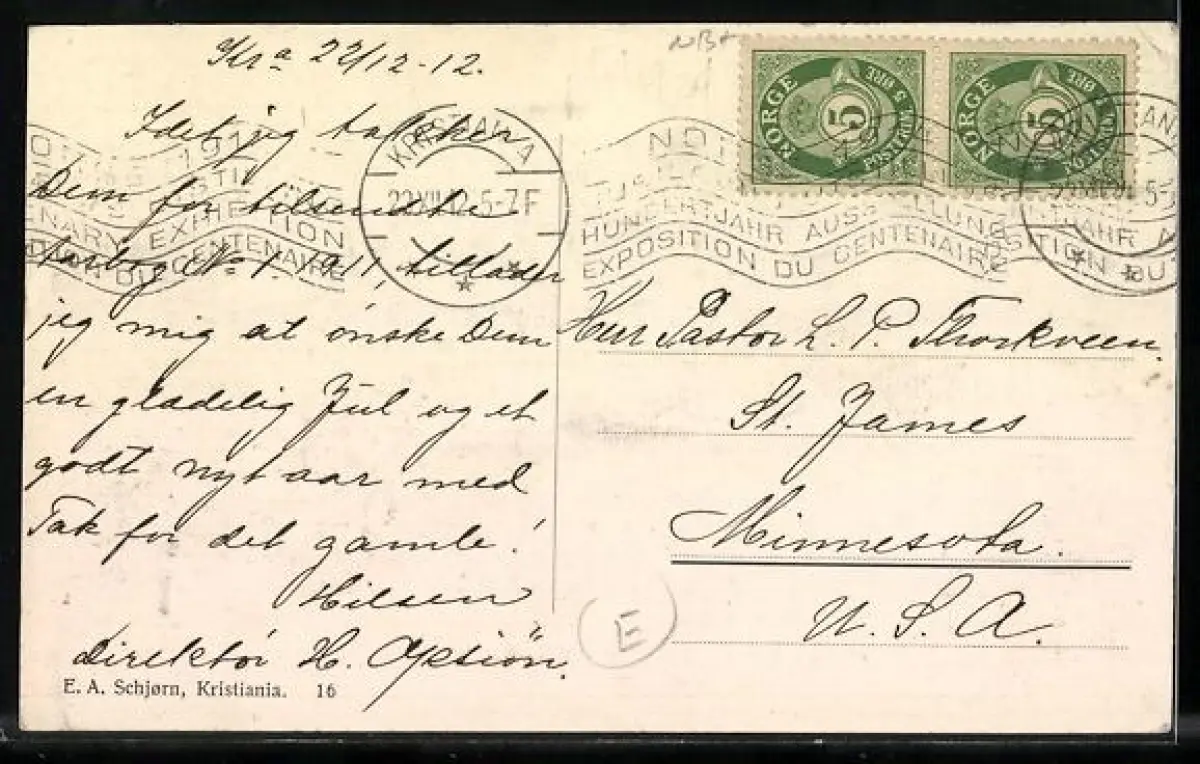 Kra 22/12-12.
Idet jeg takker
Dem for tilsendte
Aarbog No 1 1911, tillader
jeg mig at ønske Dem
en glædelig Jul og et
godt nyt aar med
Tak for det gamle!
Hilsen
Direktør H.
E. A. Schjørn, Kristiania. 16
NORGE 5 POSTFRIM 5 ØRE
NORGE 5 POSTFRIM 5 ØRE
KRISTIANIA
22 XII 12 5-7 F
HUNDERTJAHR AUSSTELLUNG
EXPOSITION DU CENTENAIRE
Herr Pastor L. P. Thorkveen.
St. James
Minnesota.
U. S. A.
E